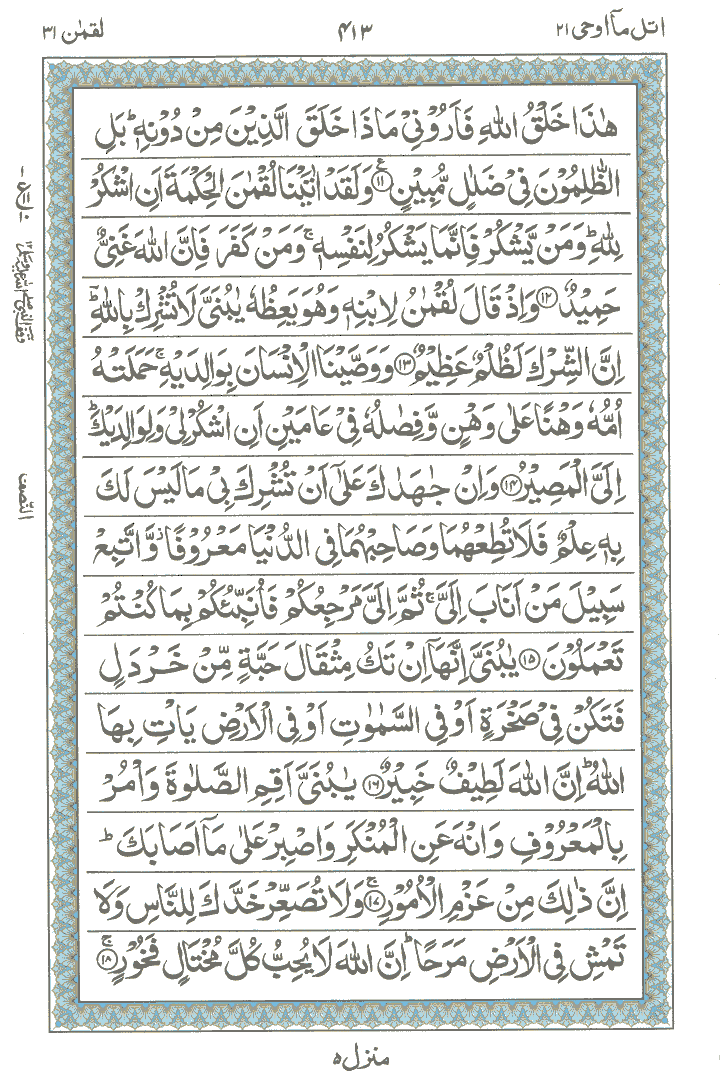 اتل مآ اوحی ۲۱
۴۱۳
لقمٰن ۳۱
هٰذَا خَلْقُ اللّٰهِ فَاَرُوْنِیْ مَاذَا خَلَقَ الَّذِیْنَ مِنْ دُوْنِهٖ ؕ بَلِ
الظّٰلِمُوْنَ فِیْ ضَلٰلٍ مُّبِیْنٍ ﴿۱۱﴾ وَلَقَدْ اٰتَیْنَا لُقْمٰنَ الْحِكْمَةَ اَنِ اشْكُرْ
لِلّٰهِ ؕ وَمَنْ یَّشْكُرْ فَاِنَّمَا یَشْكُرُ لِنَفْسِهٖ ۚ وَمَنْ كَفَرَ فَاِنَّ اللّٰهَ غَنِیٌّ
حَمِیْدٌ ﴿۱۲﴾ وَاِذْ قَالَ لُقْمٰنُ لِابْنِهٖ وَهُوَ یَعِظُهٗ یٰبُنَیَّ لَا تُشْرِكْ بِاللّٰهِ ؔؕ
اِنَّ الشِّرْكَ لَظُلْمٌ عَظِیْمٌ ﴿۱۳﴾ وَوَصَّیْنَا الْاِنْسَانَ بِوَالِدَیْهِ ۚ حَمَلَتْهُ
اُمُّهٗ وَهْنًا عَلٰی وَهْنٍ وَّفِصٰلُهٗ فِیْ عَامَیْنِ اَنِ اشْكُرْ لِیْ وَلِوَالِدَیْكَ ؕ
اِلَیَّ الْمَصِیْرُ ﴿۱۴﴾ وَاِنْ جَاهَدٰكَ عَلٰۤی اَنْ تُشْرِكَ بِیْ مَا لَیْسَ لَكَ
بِهٖ عِلْمٌ فَلَا تُطِعْهُمَا وَصَاحِبْهُمَا فِی الدُّنْیَا مَعْرُوْفًا ؗ وَّاتَّبِعْ
سَبِیْلَ مَنْ اَنَابَ اِلَیَّ ۚ ثُمَّ اِلَیَّ مَرْجِعُكُمْ فَاُنَبِّئُكُمْ بِمَا كُنْتُمْ
تَعْمَلُوْنَ ﴿۱۵﴾ یٰبُنَیَّ اِنَّهَاۤ اِنْ تَكُ مِثْقَالَ حَبَّةٍ مِّنْ خَرْدَلٍ
فَتَكُنْ فِیْ صَخْرَةٍ اَوْ فِی السَّمٰوٰتِ اَوْ فِی الْاَرْضِ یَاْتِ بِهَا
اللّٰهُ ؕ اِنَّ اللّٰهَ لَطِیْفٌ خَبِیْرٌ ﴿۱۶﴾ یٰبُنَیَّ اَقِمِ الصَّلٰوةَ وَاْمُرْ
بِالْمَعْرُوْفِ وَانْهَ عَنِ الْمُنْكَرِ وَاصْبِرْ عَلٰی مَاۤ اَصَابَكَ ؕ
اِنَّ ذٰلِكَ مِنْ عَزْمِ الْاُمُوْرِ ﴿۱۷﴾ۚ وَلَا تُصَعِّرْ خَدَّكَ لِلنَّاسِ وَلَا
تَمْشِ فِی الْاَرْضِ مَرَحًا ؕ اِنَّ اللّٰهَ لَا یُحِبُّ كُلَّ مُخْتَالٍ فَخُوْرٍ ﴿۱۸﴾ۚ
النّصف
منزل ۵